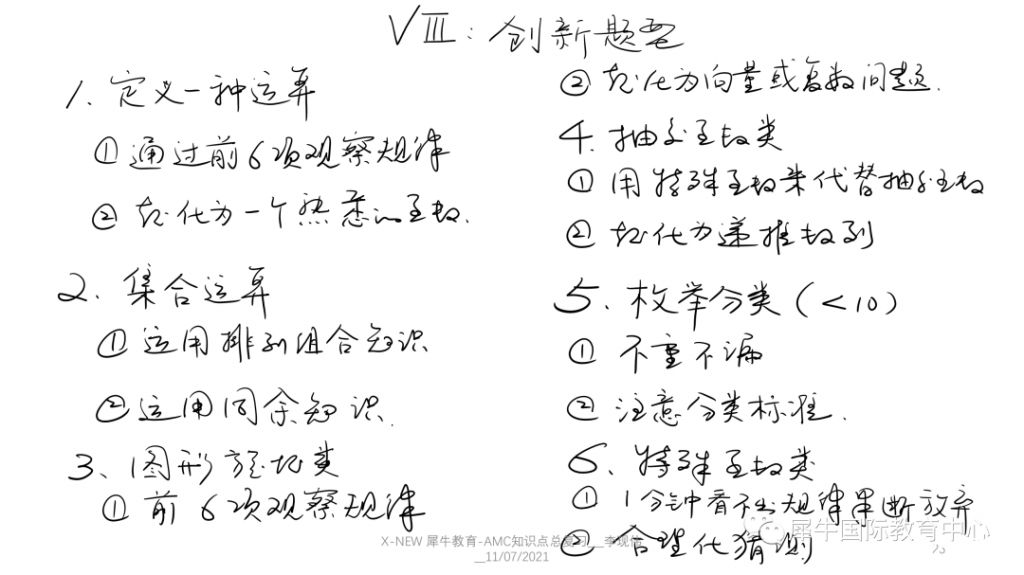 VIII：创新题型
1、定义一种运算
①通过前6项观察规律
②转化为一个熟悉的函数.
2、集合运算
①运用排列组合知识
②运用同余知识.
3、图形旋转类
①前6项观察规律
②转化为向量或复数问题.
4.抽象函数类
①用特殊函数来代替抽象函数
②转化为递推数列
5、枚举分类(<10)
①不重不漏
②注意分类标准.
6、特殊函数类
①1分钟看不出规律果断放弃
②合理化猜测
X-NEW 犀牛教育-AMC知识点总复习__李现伟
__11/07/2021
犀牛国际教育中心